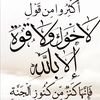 أكثروا من قول
لا حول ولا قوة
إلا بالله
فإنها كنز من كنوز الجنة